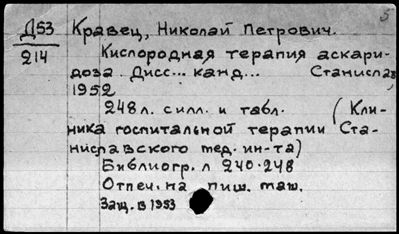 5
Д53 Кравец, Николай Петрович.
214 Кислородная терапия аскари-
доза. Дисс... канд... Станислав
1952
248 л. с илл. и табл. (Кли-
ника госпитальной терапии Ста-
ниславского мед. ин-та)
Библиогр. л 240-248
Отпеч. на пиш. маш.
Защ. в 1953